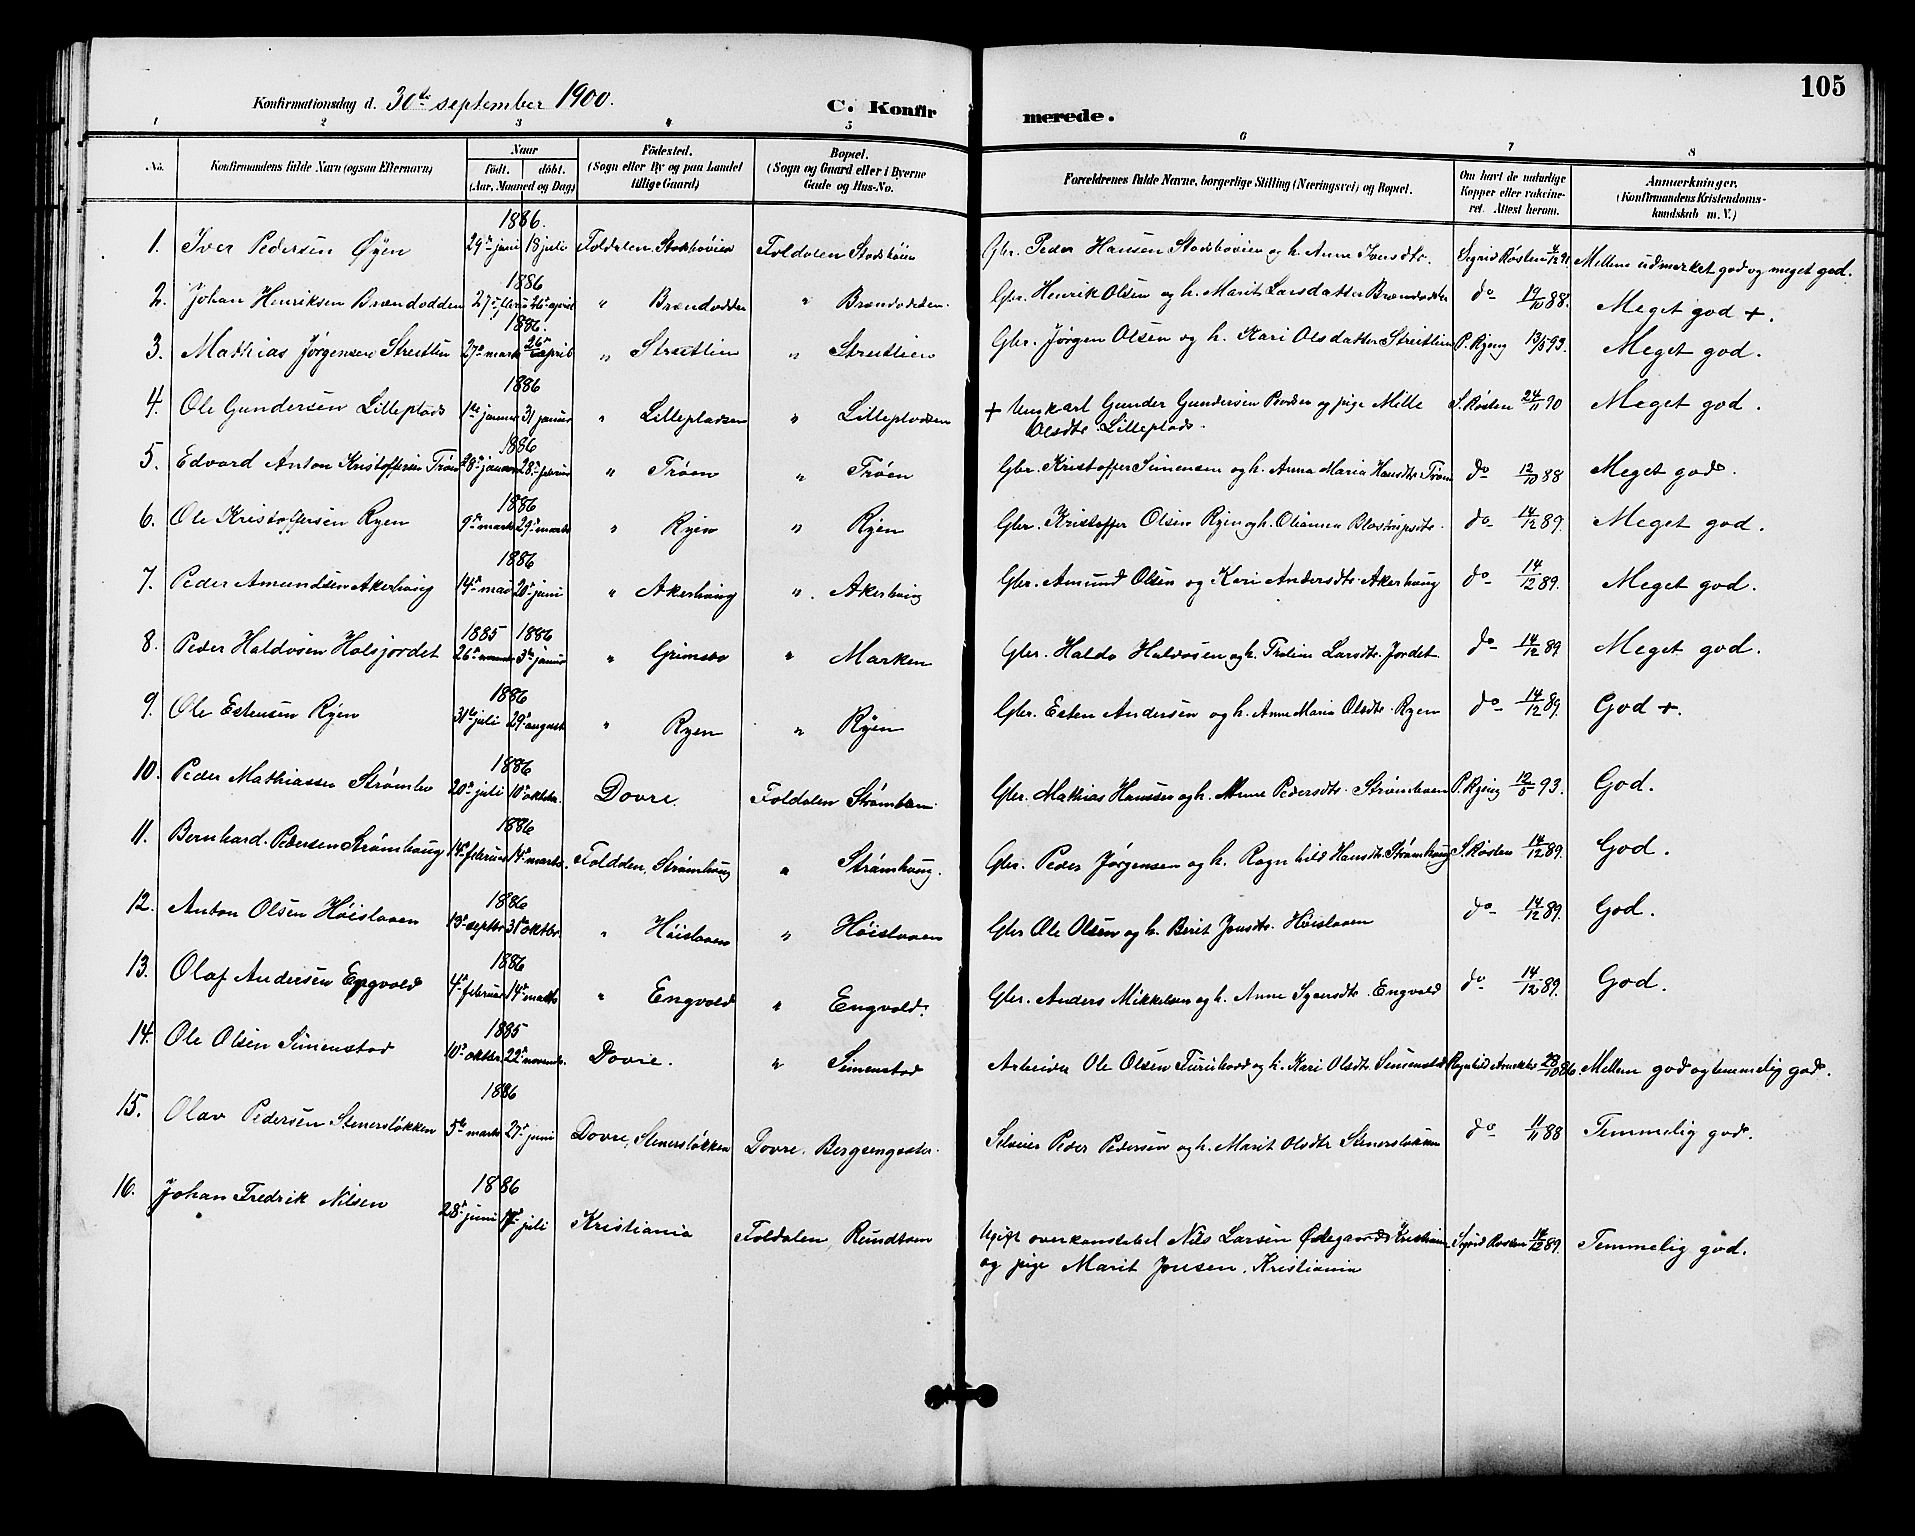 105
Konfirmationsdag d. 30te september 1900.
C. Konfirmerede.
1 2 3 4 5 6 7 8
No. Konfirmandens fulde Navn (ogsaa Efternavn) Naar Födt. döbt. (Aar, Maaned og Dag) Födested. (Sogn eller By og paa Landet tillige Gaard) Bopæl. (Sogn og Gaard eller i Byerne Gade og Hus-No. Forældrenes fulde Navne, borgerlige Stilling (Næringsvei) og Bopæl. Om havt de naturlige Kopper eller vakcineret. Attest herom. Anmærkninger. (Konfirmandens Kristendomskundskab m. V.)
1886.
1. Iver Pedersen Øyen 29de juni 18 juli Foldalen, Stadshöien Foldalen Stadshöien Gbr. Peder Hansen Stadshöien og h. Anne Iversdtr. Sigrid Røsten 4/12 91. Mellem udmerket god og meget god.
1886
2. Johan Henriksen Brændodden 27de 26de april " Brændodden " Brændodden. Gbr. Henrik Olsen og h. Marit Larsdatter Brændodden do - 19/10 88. Meget god +.
1886.
3. Mathias Jørgensen Streitlien 27de marts 26de april " Streitlien " Streitlien Gbr. Jørgen Olsen og h. Kari Olsdatter Streitlien P. Ryeng 13/5 93. Meget god.
1886
4. Ole Gundersen Lilleplads 1ste januar 31 januar " Lillepladsen " Lillepladsen + Ungkarl Gunder Gundersen og pige Mille Olsdtr. Lilleplads. S. Røsten 24/11 90 Meget god.
1886
5. Edvard Anton Kristoffersen Trøen 28de januar 28de februar " Trøen " Trøen Gbr. Kristoffer Simensen og h. Anna Maria Hansdtr. Trøen do - 12/10 88 Meget god.
1886
6. Ole Kristoffersen Ryen 9de marts 29de marts " Ryen " Ryen Gbr. Kristoffer Olsen Ryen og h. Olianna do - 14/12 89. Meget god.
1886
7. Peder Amundsen Akerhaug 14de mai 20de juni " Akerhaug " Akerhaug Gbr. Amund Olsen og Kari Andersdtr. Akerhaug do - 14/12 89. Meget god.
1885 1886
8. Peder Haldosen Halsjordet 26de 3de januar " Grimsbo " Marken Gbr. Haldo Haldosen og h. Larsdtr. Jordet do - 14/12 89 Meget god.
1886
9. Ole Estensen Ryen 31te juli 29de august " Ryen " Ryen Gbr. Esten Andersen og h. Anne Maria Olsdtr. Ryen do - 14/12 89. God +.
1886
10. Peder Mathiassen Strømbu 20de juli 10de oktbr. Dovre. Foldalen Gbr. Mathias Hansen og h. Anne Pedersdtr. P. Ryeng 12/5 93. God.
1886
11. Bernhard Pedersen Strømhaug 14de februar 14de marts. Foldalen, Strømhaug " Strømhaug. Gbr. Peder Jørgensen og h. Ragnhild Hansdtr. Strømhaug S. Røsten 14/12 89. God.
1886
12. Anton Olsen Höislaaen 13de septbr. 31te oktbr. " Höislaaen " Höislaaen Gbr. Ole Olsen og h. Berit Jonsdtr. Höislaaen do - 14/12 89. God.
1886
13. Olaf Andersen Engvold 4de februar 14de marts " Engvold " Engvold. Gbr. Anders Mikkelsen og h. Anne Engvold do - 14/12 89. God.
1885
14. Ole Olsen Simenstad 10de oktbr. 22de novemb. Dovre. " Simenstad Arbeider Ole Olsen og h. Kari Olsdtr. Simenstad Ragnhild 28/10 86. Mellem god og temmelig god.
1886
15. Olav Pedersen Stenersløkken 5te marts 27de juni Dovre, Stenersløkken Dovre. Bergsengseter. Selveier Peder Pedersen og h. Marit Olsdtr. Stenersløkken do - 11/11 88 Temmelig god.
1886
16. Johan Fredrik Nilsen 28de juni juli Kristiania Foldalen, Rundtom Ugift overkonstabel Nils Larsen Ødegaard Kristiania og pige Marit Jonsen, Kristiania Sigrid Røsten 14/12 89. Temmelig god.